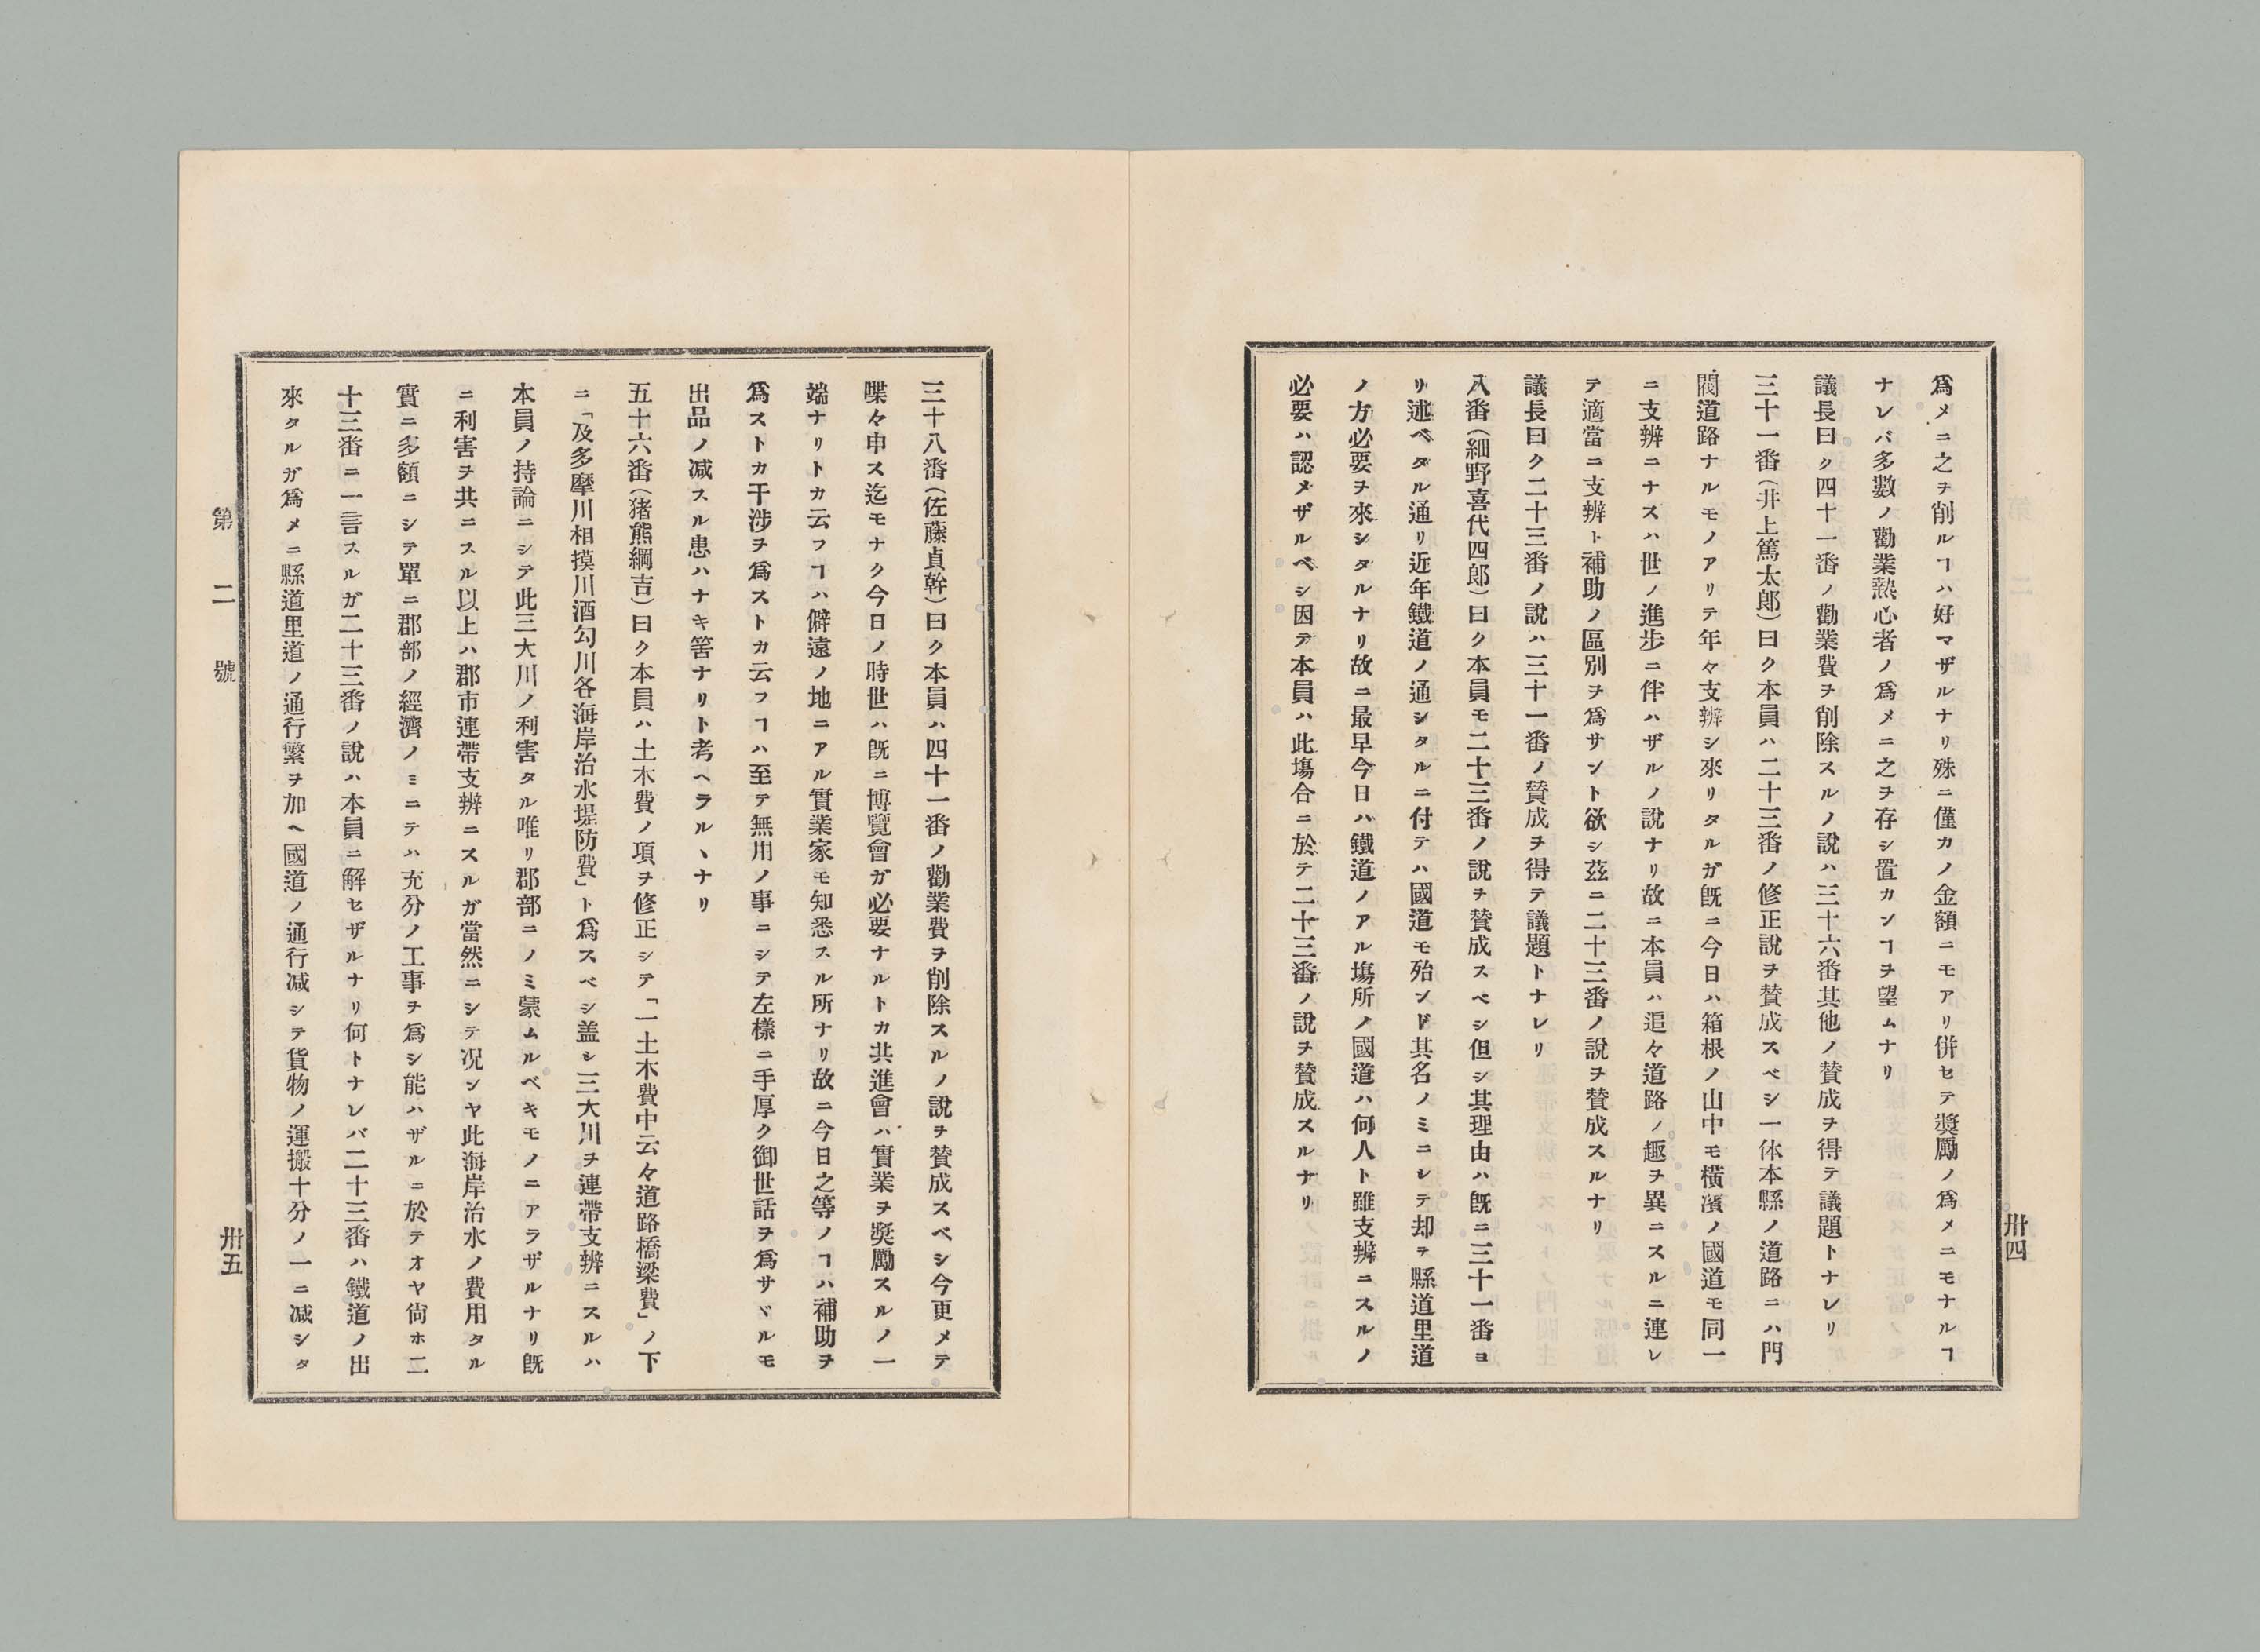 爲メニ之ヲ削ルヿハ好マザルナリ殊ニ僅カノ金額ニモアリ併セテ奬勵ノ爲メニモナルヿ
ナレバ多數ノ勸業熱心者ノ爲メニ之ヲ存シ置カンヿヲ望ムナリ
議長曰ク四十一番ノ勸業費ヲ削除スルノ說ハ三十六番其他ノ賛成ヲ得テ議題トナレリ
三十一番(井上篤太郎)曰ク本員ハ二十三番ノ修正說ヲ賛成スベシ一体本縣ノ道路ニハ門
閥道路ナルモノアリテ年々支辨シ來リタルガ旣ニ今日ハ箱根ノ山中モ橫濱ノ國道モ同一
ニ支辨ニナスハ世ノ進步ニ伴ハザルノ說ナリ故ニ本員ハ追々道路ノ趣ヲ異ニスルニ連レ
テ適當ニ支辨ト補助ノ區別ヲ爲サント欲シ茲ニ二十三番ノ說ヲ賛成スルナリ
議長曰ク二十三番ノ說ハ三十一番ノ賛成ヲ得テ議題トナレリ
八番(細野喜代四郎)曰ク本員モ二十三番ノ說ヲ賛成スベシ但シ其理由ハ旣ニ三十一番ヨ
リ述ベタル通リ近年鐵道ノ通シタルニ付テハ國道モ殆ンド其名ノミニシテ却テ縣道里道
ノ方必要ヲ來シタルナリ故ニ最早今日ハ鐵道ノアル塲所ノ國道ハ何人ト雖支辨ニスルノ
必要ハ認メザルベシ因テ本員ハ此塲合ニ於テ二十三番ノ說ヲ賛成スルナリ
卅四
三十八番(佐藤貞幹)曰ク本員ハ四十一番ノ勸業費ヲ削除スルノ說ヲ賛成スベシ今更メテ
喋々申ス迄モナク今日ノ時世ハ旣ニ博覽會ガ必要ナルトカ共進會ハ實業ヲ奬勵スルノ一
端ナリトカ云フヿハ僻遠ノ地ニアル實業家モ知悉スル所ナリ故ニ今日之等ノヿハ補助ヲ
爲ストカ干涉ヲ爲ストカ云フヿハ至テ無用ノ事ニシテ左樣ニ手厚ク御世話ヲ爲サヾルモ
出品ノ减スル患ハナキ筈ナリト考ヘラルヽナリ
五十六番(猪熊綱吉)曰ク本員ハ土木費ノ項ヲ修正シテ「一土木費中云々道路橋梁費」ノ下
ニ「及多摩川相摸川酒勾川各海岸治水堤防費」ト爲スベシ盖シ三大川ヲ連帶支辨ニスルハ
本員ノ持論ニシテ此三大川ノ利害タル唯リ郡部ニノミ蒙ムルベキモノニアラザルナリ旣
ニ利害ヲ共ニスル以上ハ郡市連帶支辨ニスルガ當然ニシテ况ンヤ此海岸治水ノ費用タル
實ニ多額ニシテ單ニ郡部ノ經濟ノミニテハ充分ノ工事ヲ爲シ能ハザルニ於テオヤ尙ホ二
十三番ニ一言スルガ二十三番ノ說ハ本員ニ解セザルナリ何トナレバ二十三番ハ鐵道ノ出
來タルガ爲メニ縣道里道ノ通行繁ヲ加ヘ國道ノ通行减シテ貨物ノ運搬十分ノ一ニ减シタ
第二號
卅五